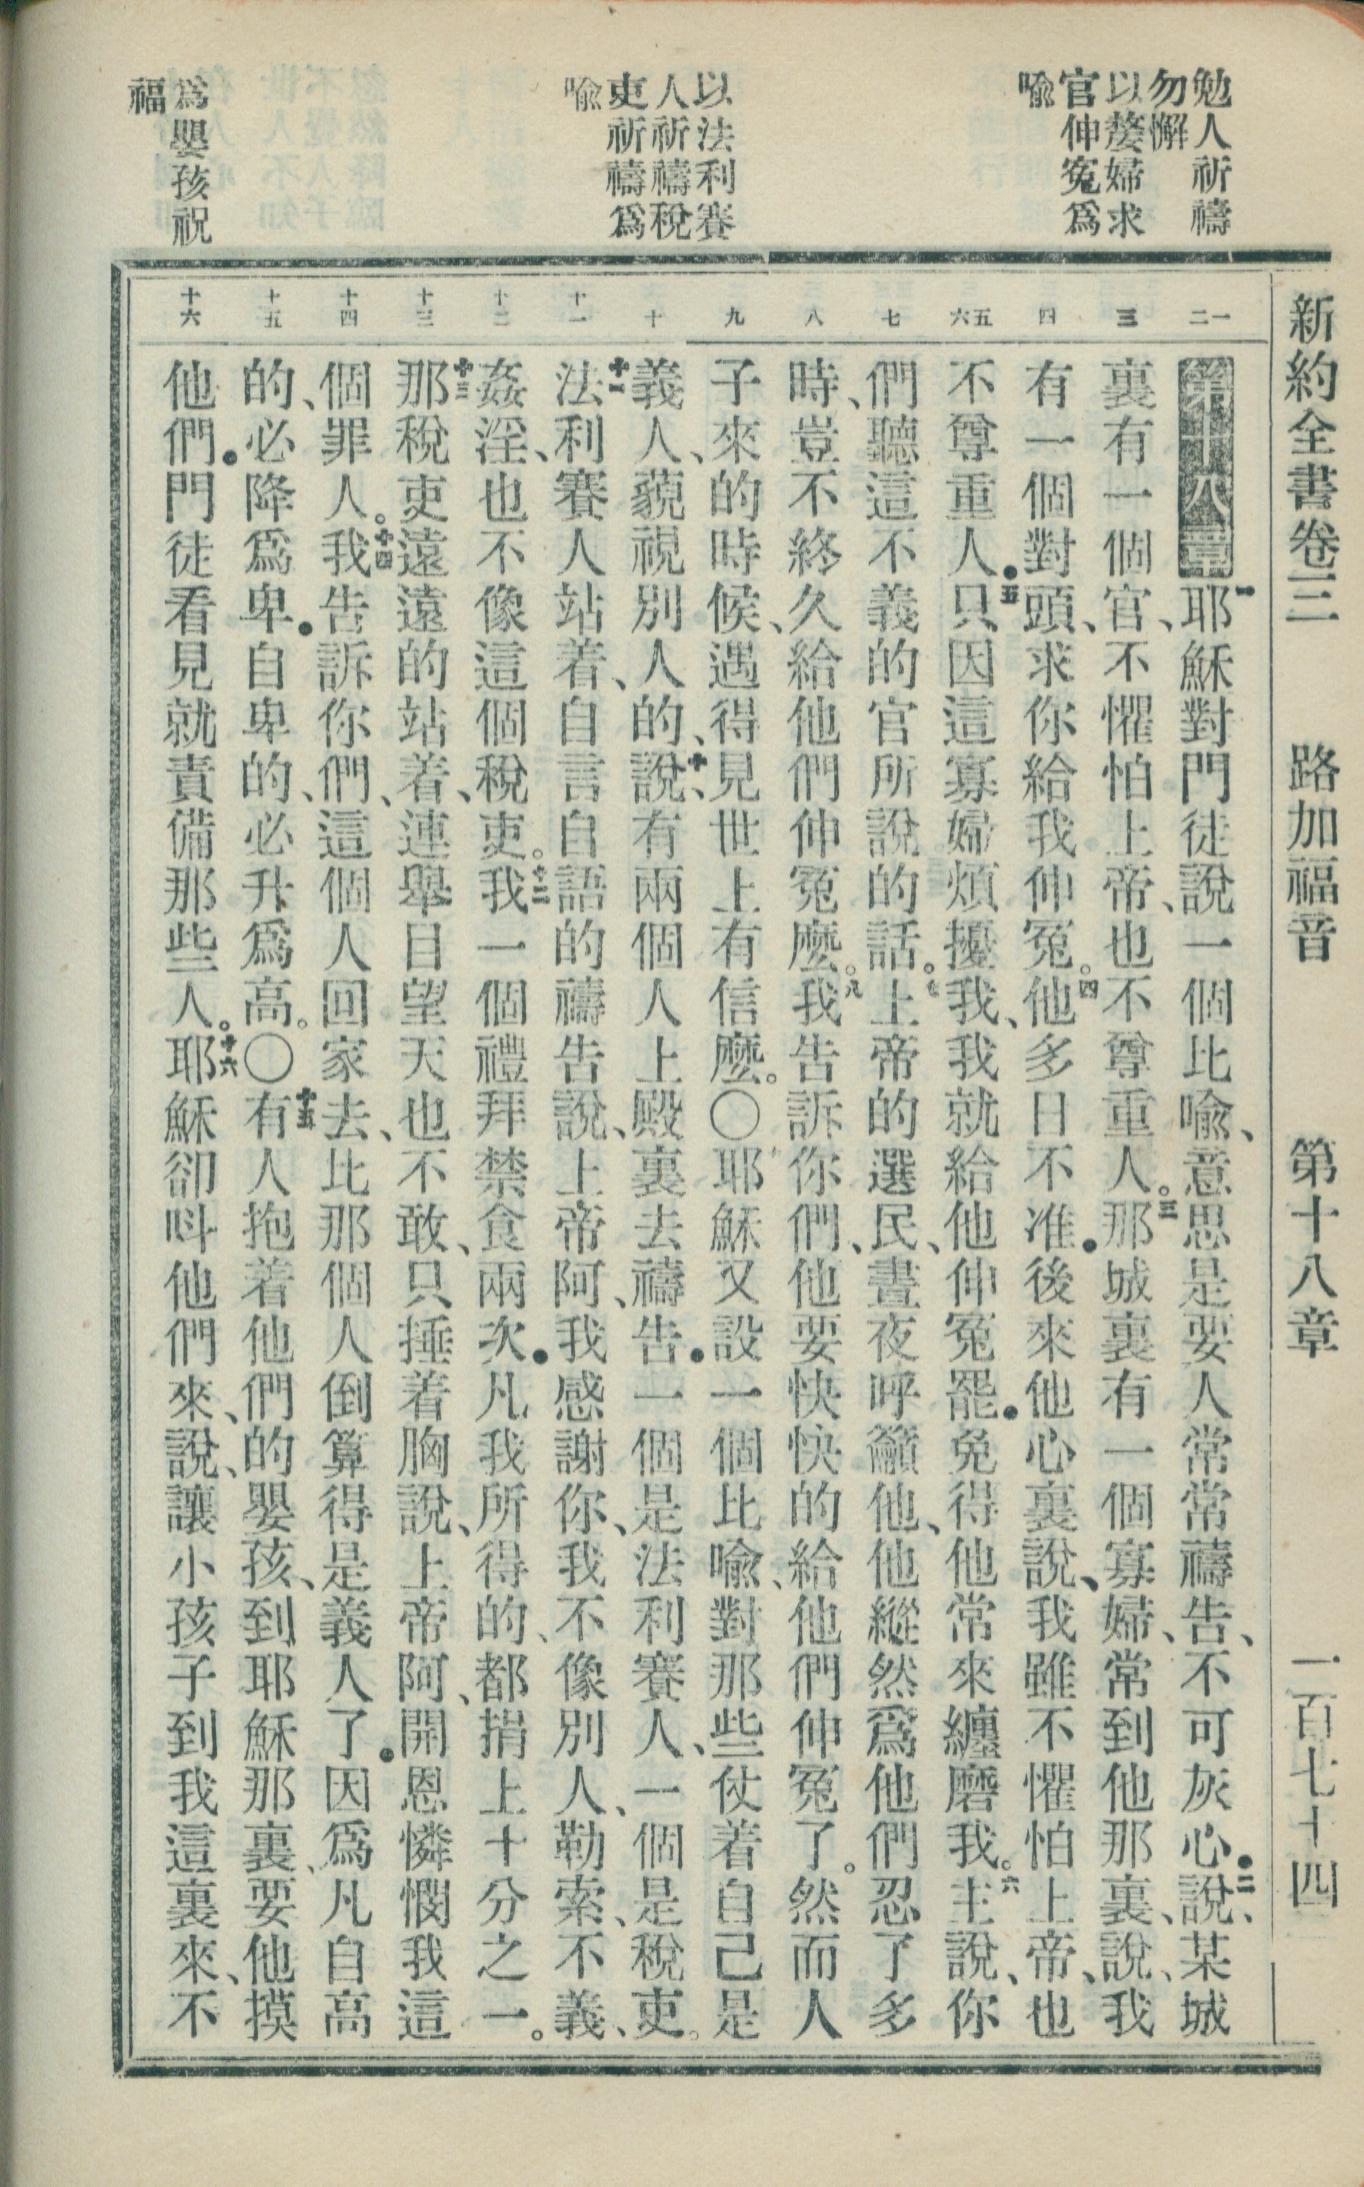 新約全書卷三　路加福音　第十八章　一百七十四
勉人祈禱
勿懈
以嫠婦求
官伸冤爲
喩
以法利賽
人祈禱稅
吏祈禱爲
喩
爲嬰孩祝
福
一二
三
四
五六
七
八
九
十
十一
十二
十三
十四
十五
十六
第十八章一耶穌對門徒說一個比喩、意思是要人常常禱告、不可灰心●二說、某城
裏有一個官、不懼怕上帝、也不尊重人。三那城裏有一個寡婦、常到他那裏、說、我
有一個對頭、求你給我伸冤。四他多日不准●後來他心裏說、我雖不懼怕上帝、也
不尊重人●五只因這寡婦煩擾我、我就給他伸冤罷●免得他常來纏磨我。六主說、你
們聽這不義的官所說的話。七上帝的選民、晝夜呼籲他、他縱然爲他們忍了多
時、豈不終久給他們伸冤麽。八我告訴你們、他要快快的給他們伸冤了。然而人
子來的時候、遇得見世上有信麽。〇耶穌又設一個比喩、對那些仗着自己是
義人、藐視別人的、十說、有兩個人上殿裏去禱告●一個是法利賽人、一個是稅吏。
十一法利賽人站着、自言自語的禱告說、上帝阿、我感謝你、我不像別人、勒索、不義、
姦淫、也不像這個稅吏。十二我一個禮拜禁食兩次●凡我所得的、都捐上十分之一。
十三那稅吏遠遠的站着、連舉目望天也不敢、只捶着胸說、上帝阿、開恩憐憫我這
個罪人。十四我告訴你們、這個人回家去、比那個人倒算得是義人了●因爲凡自高
的、必降爲卑●自卑的、必升爲高。〇十五有人抱着他們的嬰孩、到耶穌那裏、要他摸
他們●門徒看見就責備那些人。十六耶穌卻呌他們來、說、讓小孩子到我這裏來、不